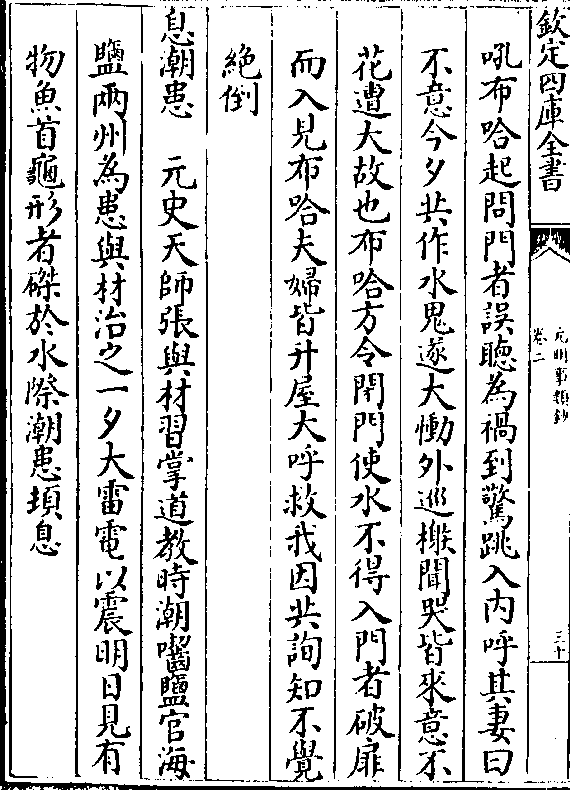 欽定四庫全書
元明事類鈔
卷二
三十
吼布哈起問門者誤聽為禍到驚跳入内呼其妻曰
不意今夕共作水鬼遂大慟外巡檄聞哭皆來意不
花遭大故也布哈方令閉門使水不得入門者破扉
而入見布哈夫婦皆升屋大呼救我因共詢知不覺
絶倒
息潮患　元史天師張與材習掌道教時潮囓鹽官海
鹽兩州為患與材治之一夕大雷電以震明日見有
物魚首龜形者磔於水際潮患頓息